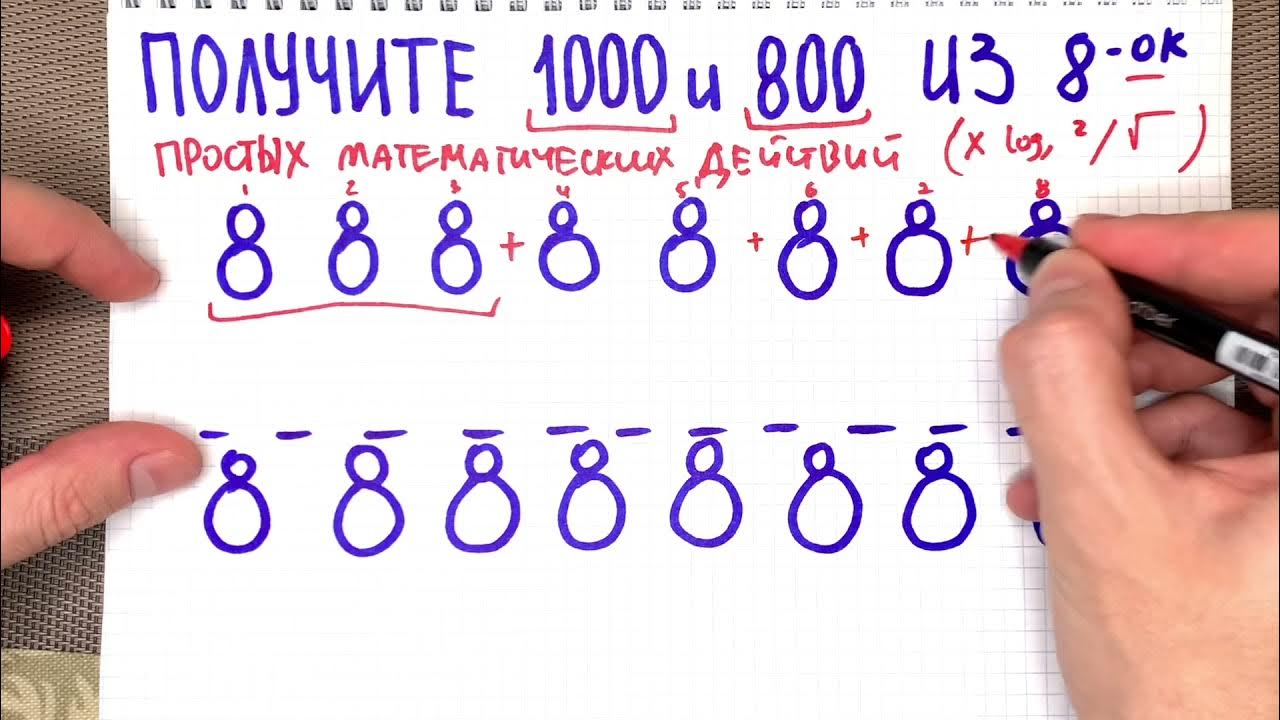 ПОЛУЧИТЕ 1000 и 800 ИЗ 8-ОК
ПРОСТЫХ МАТЕМАТИЧЕСКИХ ДЕЙСТВИЙ (x log, ² / √ )
1 2 3 4 5 6 7 8
8 8 8 + 8 8 + 8 + 8 + 8
8 8 8 8 8 8 8